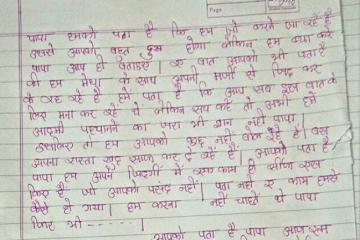 पापा हमको पता है कि हम जो करने जा रहे हैं
उससे आपको बहुत दुख होगा लेकिन हम क्या करे
पापा आप ही बताइए। एक बात आपको भी पता है
की हम मेघा के साथ अपनी मर्जी से
के रह रहे है हमे पता है कि आप सब इस बात के
लिए मना कर रहे थे लेकिन सच कहे तो अभी हमे
आदमी पहचानने का जरा भी ज्ञान नही पापा
इसलिए तो हम आपको कुछ नही बोल रहे है। बस
अपना रास्ता खुद साफ कर दे रहे है। आपको पता है
पापा हम अपने जिंदगी मे एक काम ही
किए है जो आपको पसंद नहीं। पता नही ए काम हमसे
कैसे हो गया। हम करना नही चाहते थे पापा
फिर भी ------।
आपको पता है पापा आज हम